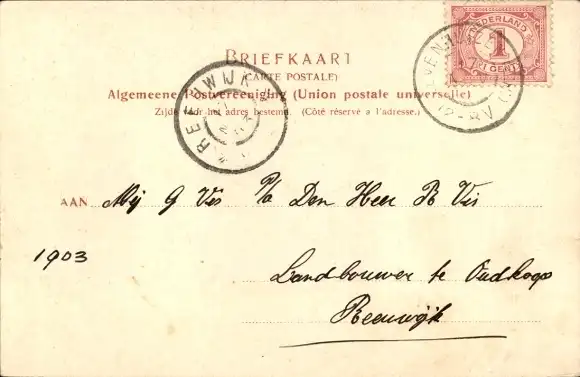 BRIEFKAART
(CARTE POSTALE)
Algemeene Postvereeniging (Union postale universelle)
Zijde voor het adres bestemd. (Côté réservé a l'adresse.)
NEDERLAND
1
CENT
REEUWIJK
AAN Mej G Vis P/a Den Heer R Vis
1903
Landbouwer te Oudkoop
Reeuwijk